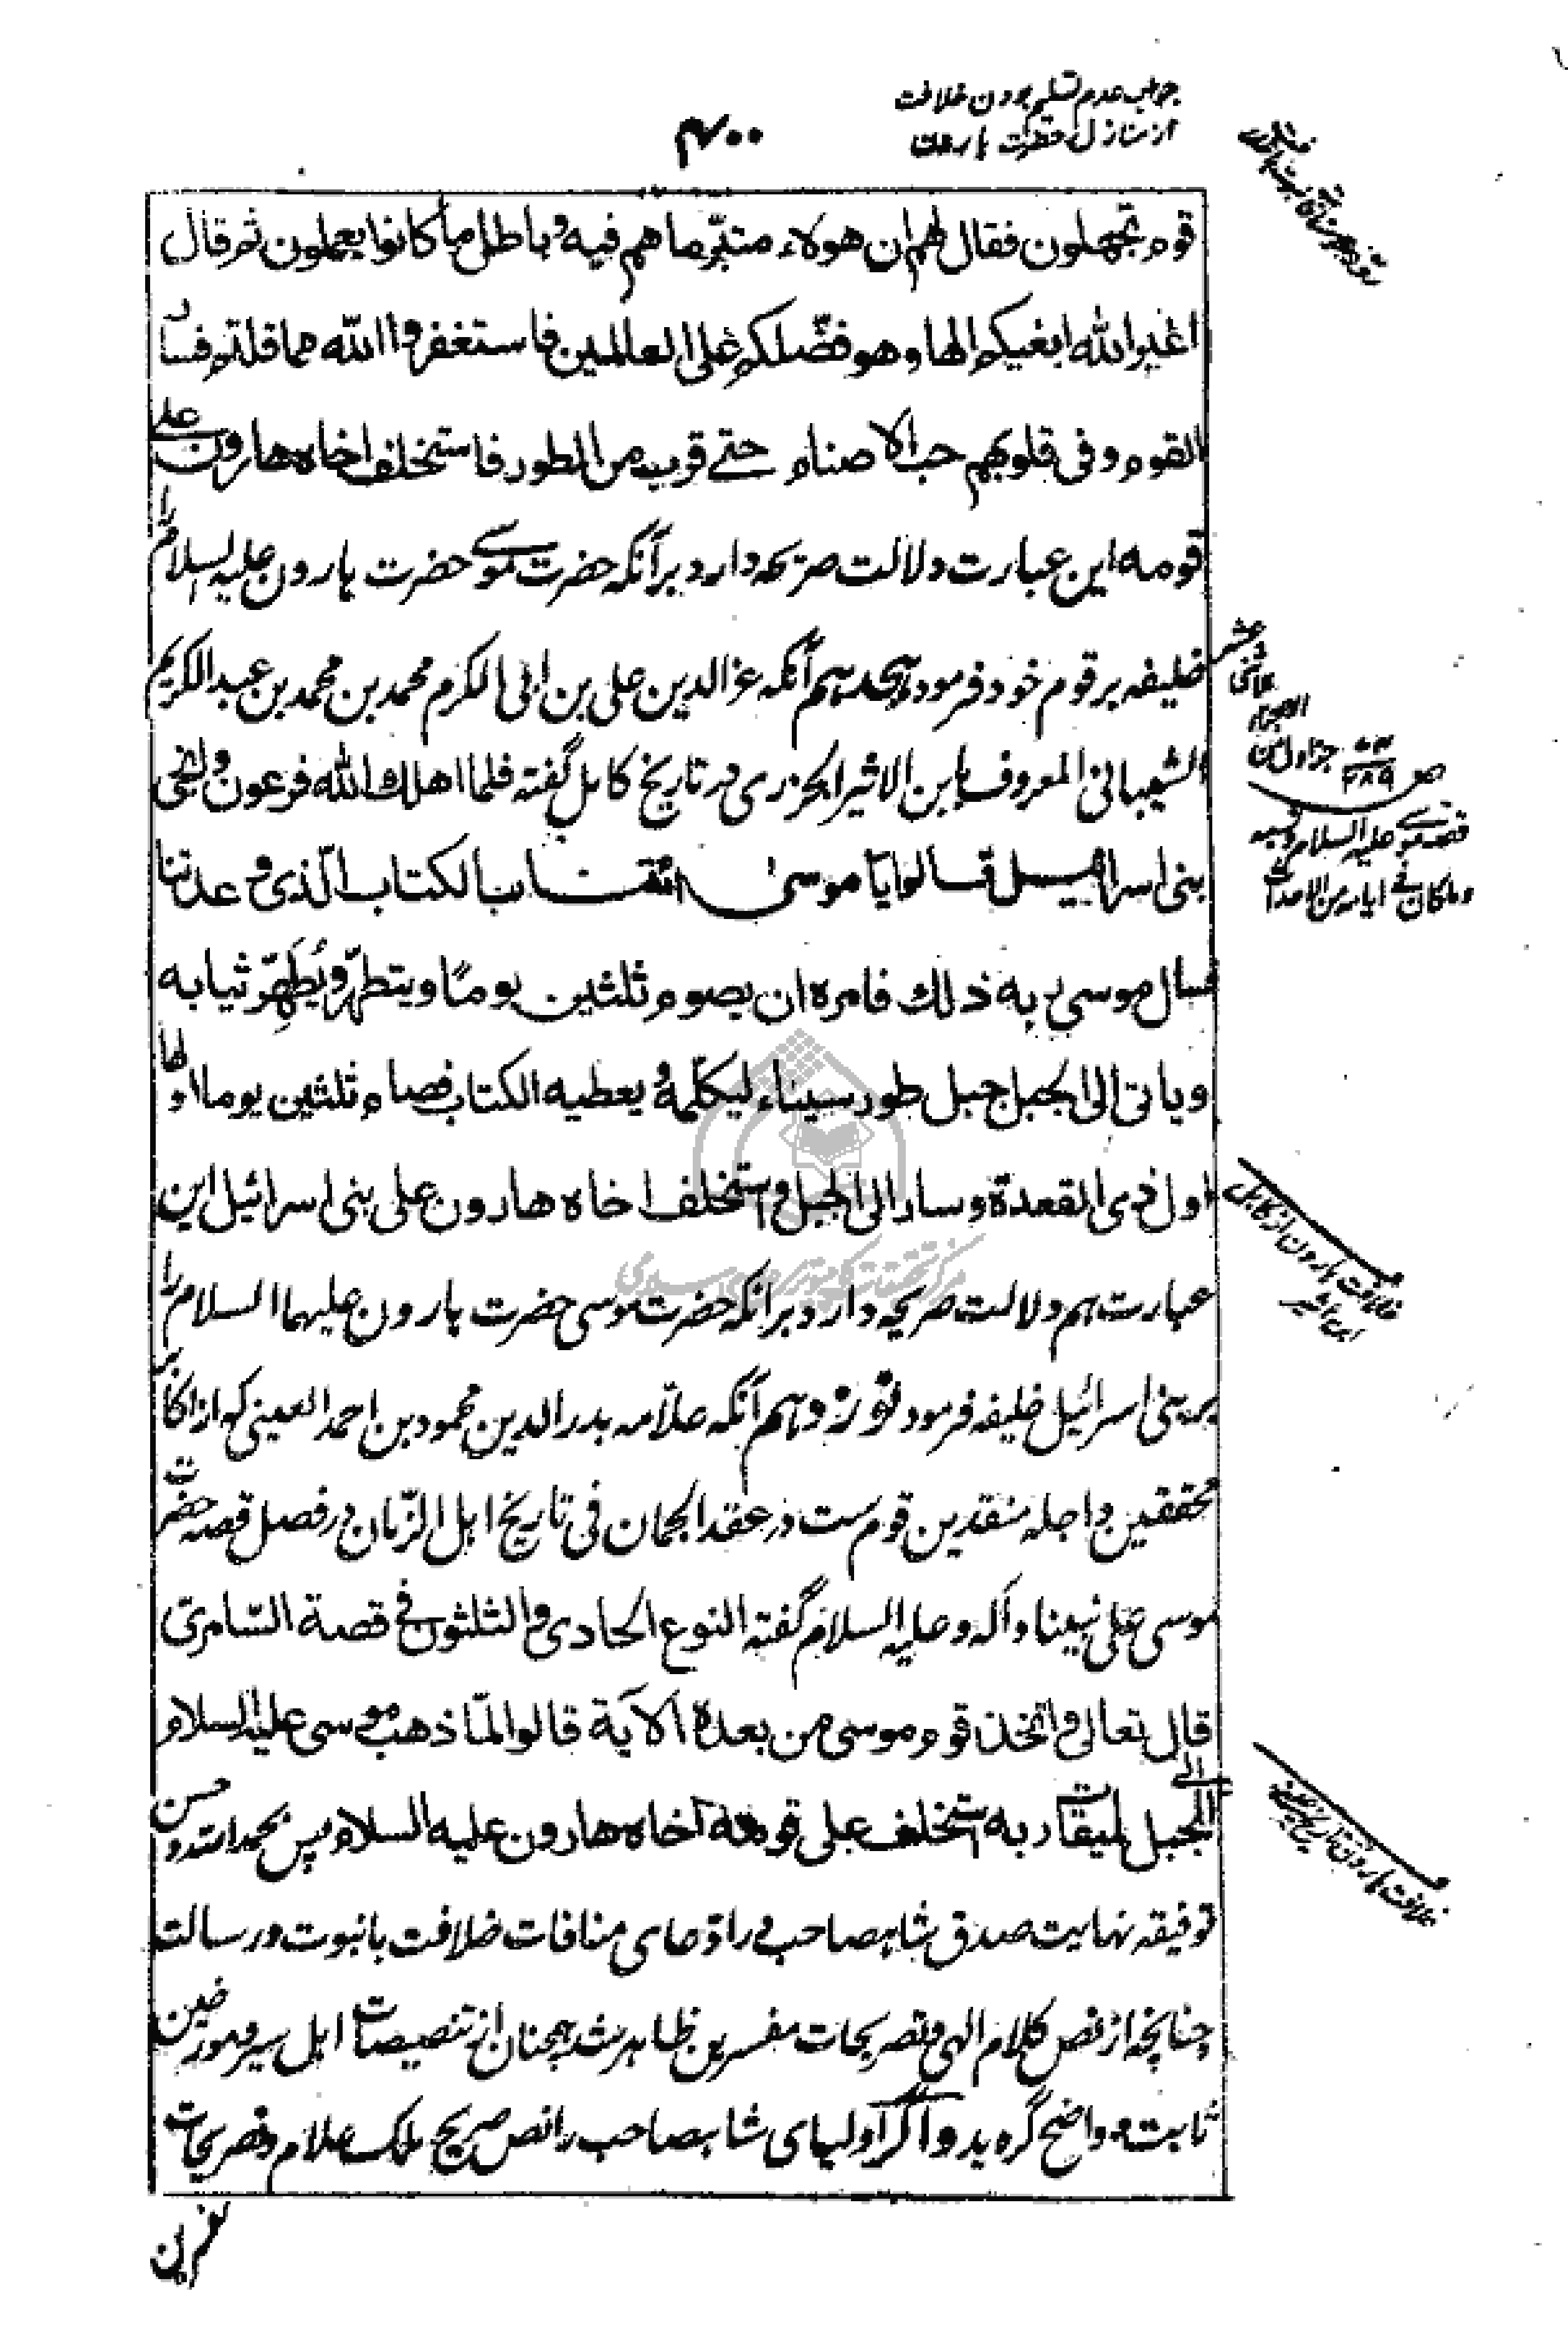 جواب عدم تسلیم بودن خلافت
از منازل حضرت هارون
۴۰۰
قوم تجهلون فقال لهم ان هولاء متبّر ما هم فیه و باطل ما كانوا یعملون ثم قال
اغیر الله ابغیكم الها و هو فضّلكم علی العالمین فاستغفروا الله مما قلتم فسار
القوم و فی قلوبهم حب الاصنام حتی قرب من الطور فاستخلف اخاه هارون علی
قومه این عبارت دلالت صریحه دارد بر آنكه حضرت موسی حضرت هارون علیه السلام را
خلیفه بر قوم خود فرموده هجدهم آنكه عز الدین علی بن ابی الكرم محمد بن محمد بن عبد الكریم
الشیبانی المعروف بابن الاثیر الجزری در تاریخ كامل گفته فلما اهلك الله فرعون و انجی
بنی اسرائیل قالوا یا موسی ائتنا بالكتاب الّذی وعدتنا
فسال موسی ربه ذلك فامره ان یصوم ثلثین یومًا و یتطهّر و یُطَهِّر ثیابه
و یاتی الی الجبل جبل طور سیناء لیكلّمهُ و یعطیه الكتاب فصام ثلثین یوما اولها
اول ذی القعدة و سار الی الجبل و استخلف اخاه هارون علی بنی اسرائیل این
عبارت هم دلالت صریحه دارد بر انكه حضرت موسی حضرت هارون علیهما السلام را
بر بنی اسرائیل خلیفه فرمود نوزدهم آنكه علّامه بدر الدین محمود بن احمد العینی كه از اكابر
محققین و اجله منقدین قوم ست در عقد الجمان فی تاریخ اهل الزّمان در فصل قصه حضرت
موسی علی نبینا و آله و علیه السلام گفته النوع الحادی و الثلثون فی قصة السّامری
قال تعالی و اتخذ قوم موسی من بعده الآیة قالوا لمّا ذهب موسی علیه السلام
الی الجبل لمیقات ربه استخلف علی قومه اخاه هارون علیه السلام پس بحمد الله و حسن
توفیقه نهایت صدق شاهصاحب در ادعای منافات خلافت با نبوت و رسالت
چنانچه از نص كلام الهی و تصریحات مفسرین ظاهر شد همچنان از تنصیصات اهل سیر و مورخین
ثابت و واضح گردید و اگر اولیای شاهصاحب را نص صریح ملك علام و تصریحات
ص ۸۳/۲۸۹ جزء اول من
قصة موسی علیه السلام و نسبه
و ما كان فی ایامه من الاحداث
خلافت هارون از كامل
ابن اثیر